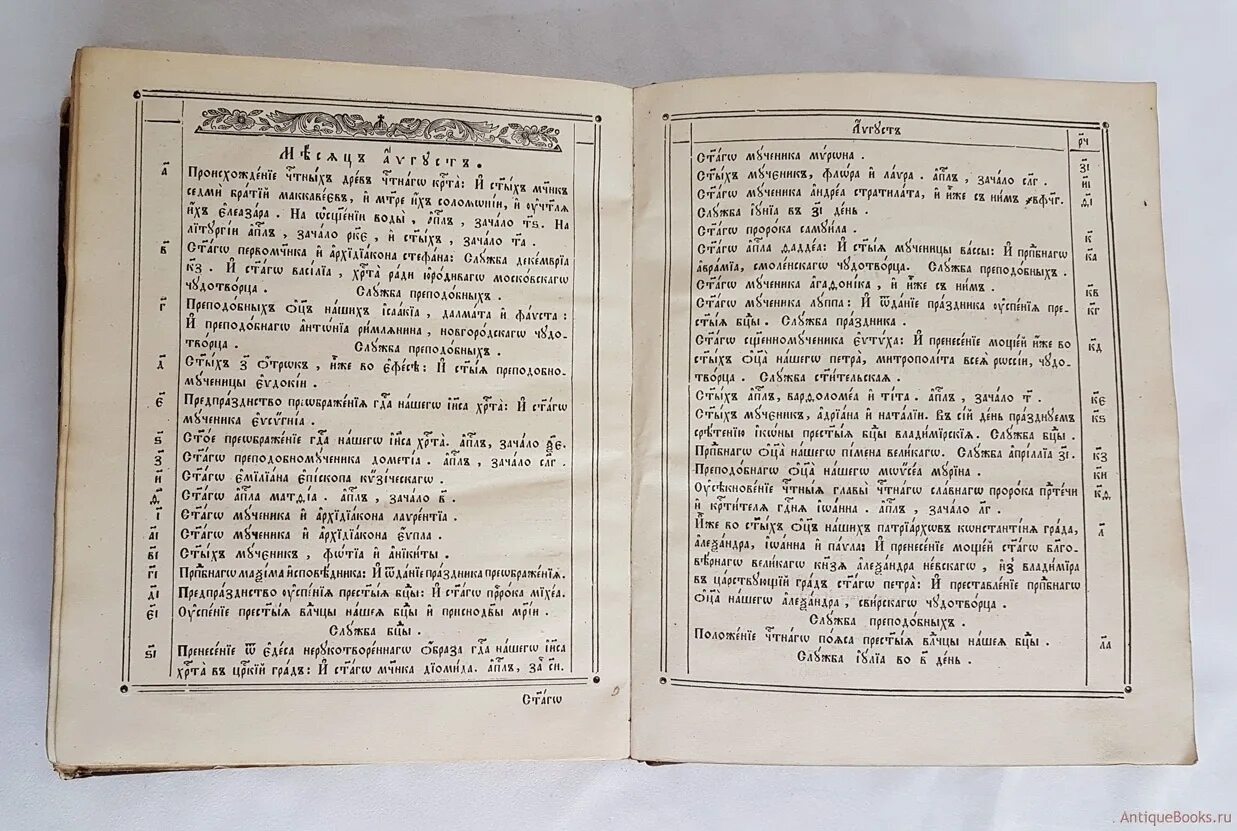 Мѣ́сяцъ а҆́ѵгꙋстъ.
а҃
Происхожде́нїе чⷭ҇тны́хъ дре́въ чⷭ҇тна́гѡ крⷭ҇та̀: И҆ ст҃ы́хъ мч҃нкъ
седмѝ бра́тїй маккаве́евъ, и҆ мт҃ре и҆́хъ соломѡні́и, и҆ ᲂу҆чт҃лѧ
и҆́хъ є҆леаза́ра. На ѡ҆сщ҃е́нїи воды̀, а҆пⷭ҇лъ, зача́ло т҃ѕ. На
лїтꙋргі́и а҆пⷭ҇лъ, зача́ло рк҃є, и҆ ст҃ы́хъ, зача́ло т҃л.
в҃
Ст҃а́гѡ первомч҃нка и҆ а҆рхїдїа́кона стефа́на: Слꙋ́жба деке́мврїа
к҃з. И҆ ст҃а́гѡ васі́лїа, хрⷭ҇та̀ ра́ди ю҆ро́диваго моско́вскагѡ
чꙋдотво́рца. Слꙋ́жба преподо́бныхъ.
г҃
Преподо́бныхъ ѻ҆ц҃ъ на́шихъ і҆саа́кїа, далма́та и҆ фа́ѵста:
И҆ преподо́бнагѡ а҆нтѡ́нїа ри́млѧнина, новгоро́дскагѡ чꙋдо-
тво́рца. Слꙋ́жба преподо́бныхъ.
д҃
Ст҃ы́хъ з҃ ѻ҆́трѡкъ, и҆̀же во є҆фе́сѣ: И҆ ст҃ы́ѧ преподобно-
мꙋ́ченицы є҆ѵдокі́и.
є҃
Предпра́зднство преѡбраже́нїѧ гдⷭ҇а на́шегѡ і҆и҃са хрⷭ҇та̀: И҆ ст҃а́гѡ
мꙋ́ченика є҆ѵсі́гнїа.
ѕ҃
Ст҃о́е преѡбраже́нїе гдⷭ҇а на́шегѡ і҆и҃са хрⷭ҇та̀. а҆пⷭ҇лъ, зача́ло ѯ҃є.
з҃
Ст҃а́гѡ преподобномꙋ́ченика доме́тїа. а҆пⷭ҇лъ, зача́ло сл҃г.
и҃
Ст҃а́гѡ є҆мїлїа́на є҆пі́скопа кѵзі́ческагѡ.
ѳ҃
Ст҃а́гѡ а҆пⷭ҇ла матѳі́а. а҆пⷭ҇лъ, зача́ло в҃.
і҃
Ст҃а́гѡ мꙋ́ченика и҆ а҆рхїдїа́кона лаѵре́нтїа.
а҃і
Ст҃а́гѡ мꙋ́ченика и҆ а҆рхїдїа́кона є҆́ѵпла.
в҃і
Ст҃ы́хъ мꙋ́ченикъ, фѡ́тїа и҆ а҆ники́ты.
г҃і
Прпⷣбнагѡ маѯі́ма и҆сповѣ́дника: И҆ ѿда́нїе пра́здника преѡбраже́нїѧ.
д҃і
Предпра́зднство ᲂу҆спе́нїѧ прест҃ы́ѧ бц҃ы: И҆ ст҃а́гѡ прⷪ҇ро́ка мїхе́а.
є҃і
Оу҆спе́нїе прест҃ы́ѧ влчⷣцы на́шеѧ бц҃ы и҆ приснодв҃ы мр҃і́и.
Слꙋ́жба бц҃ы.
ѕ҃і
Пренесе́нїе ѿ є҆де́са нерꙋкотворе́ннагѡ ѻ҆́браза гдⷭ҇а на́шегѡ і҆и҃са
хрⷭ҇та̀ въ црⷭ҇кїй гра́дъ: И҆ ст҃а́гѡ мч҃нка дїоми́да. а҆пⷭ҇лъ, за
Ст҃а́гѡ
А҆́ѵгꙋстъ
р҃ч
Ст҃а́гѡ мꙋ́ченика мѵ́рѡна.
з҃і
Ст҃ы́хъ мꙋ́ченикъ, флѡ́ра и҆ ла́ѵра. а҆пⷭ҇лъ, зача́ло сл҃г.
и҃і
Ст҃а́гѡ мꙋ́ченика а҆ндре́а стратила́та, и҆ и҆̀же съ ни́мъ ҂вф҃чг.
ѳ҃і
Слꙋ́жба і҆ꙋ́нїа въ з҃і де́нь.
Ст҃а́гѡ проро́ка самꙋи́ла.
к҃
Ст҃а́гѡ а҆пⷭ҇ла ѳадде́а: И҆ ст҃ы́ѧ мꙋ́ченицы ва́ссы: И҆ прпⷣбнагѡ
к҃а
а҆вра́мїа, смоле́нскагѡ чꙋдотво́рца. Слꙋ́жба преподо́бныхъ.
Ст҃а́гѡ мꙋ́ченика а҆гаѳоні́ка, и҆ и҆̀же съ ни́мъ.
к҃в
Ст҃а́гѡ мꙋ́ченика лꙋ́ппа: И҆ ѿда́нїе пра́здника ᲂу҆спе́нїѧ пре-
к҃г
ст҃ы́ѧ бц҃ы. Слꙋ́жба пра́здника.
Ст҃а́гѡ сщ҃енномꙋ́ченика є҆ѵтѵ́ха: И҆ пренесе́нїе моще́й и҆́же во
к҃д
ст҃ы́хъ ѻ҆ц҃а̀ на́шегѡ петра̀, митрополі́та всеѧ̀ рѡссі́и, чꙋдо-
тво́рца. Слꙋ́жба ст҃и́тельскаѧ.
Ст҃ы́хъ а҆пⷭ҇лъ, варѳоломе́а и҆ ті́та. а҆пⷭ҇лъ, зача́ло т҃.
к҃є
Ст҃ы́хъ мꙋ́ченикъ, а҆дрїа́на и҆ наталі́и. Въ се́й де́нь пра́зднꙋемъ
к҃ѕ
срѣ́тенїю і҆кѡ́ны прест҃ы́ѧ бц҃ы влади́мїрскїѧ. Слꙋ́жба бц҃ы.
Прпⷣбнагѡ ѻ҆ц҃а̀ на́шегѡ пі́мена вели́кагѡ. Слꙋ́жба а҆прі́ллїа з҃і.
к҃з
Преподо́бнагѡ ѻ҆ц҃а̀ на́шегѡ мѡѷсе́а мꙋ́рина.
к҃и
Оу҆сѣкнове́нїе чⷭ҇тны́ѧ главы̀ чⷭ҇тна́гѡ сла́внагѡ проро́ка прⷣте́чи
к҃ѳ
и҆ крⷭ҇ти́телѧ гдⷭ҇нѧ і҆ѡа́нна. а҆пⷭ҇лъ, зача́ло л҃г.
И҆̀же во ст҃ы́хъ ѻ҆ц҃ъ на́шихъ патрїа́рхѡвъ кѡнстанті́нѧ гра́да,
л҃
а҆леѯа́ндра, і҆ѡа́нна и҆ па́ѵла: И҆ пренесе́нїе моще́й ст҃а́гѡ бл҃гѡ-
вѣ́рнагѡ вели́кагѡ кнѧ́зѧ а҆леѯа́ндра не́вскагѡ, и҆з̾ влади́мїра
въ ца́рствꙋющїй гра́дъ ст҃а́гѡ петра̀: И҆ преставле́нїе прпⷣбнагѡ
ѻ҆ц҃а̀ на́шегѡ а҆леѯа́ндра, сви́рскагѡ чꙋдотво́рца.
Слꙋ́жба преподо́бныхъ.
Положе́нїе чⷭ҇тна́гѡ по́ѧса прест҃ы́ѧ влчⷣцы на́шеѧ бц҃ы.
л҃а
Слꙋ́жба і҆ꙋ́лїа во в҃ де́нь.
AntiqueBooks.ru